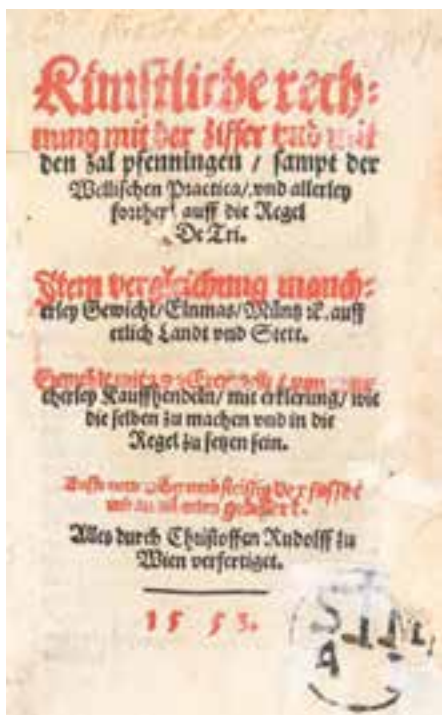 Künstliche rech-
nung mit der ziffer vnd mit
den zal pfenningen / sampt der
Wellischen Practica / vnd allerley
forthel auff die Regel
De Tri.
Item vergleichung manch-
erley Gewicht / Elnmas / Müntz ꝛc. auff
etlich Landt vnd Stett.
cherley Kauffhendeln / mit erklerung / wie
die selben zu machen vnd in die
Regel zu setzen sein.
Auffs new
gebessert.
Alles durch Christoffen Rudolff zu
Wien verfertiget.
1553.